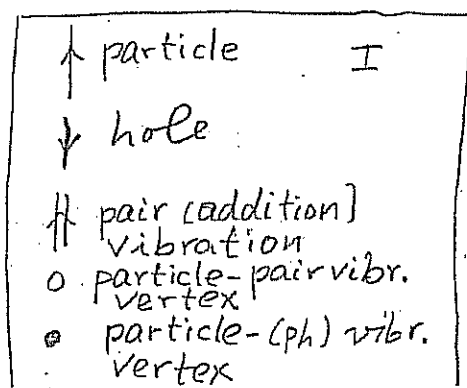 particle I
hole
pair (addition]
vibration
particle-pair vibr.
vertex
particle-(ph) vibr.
vertex